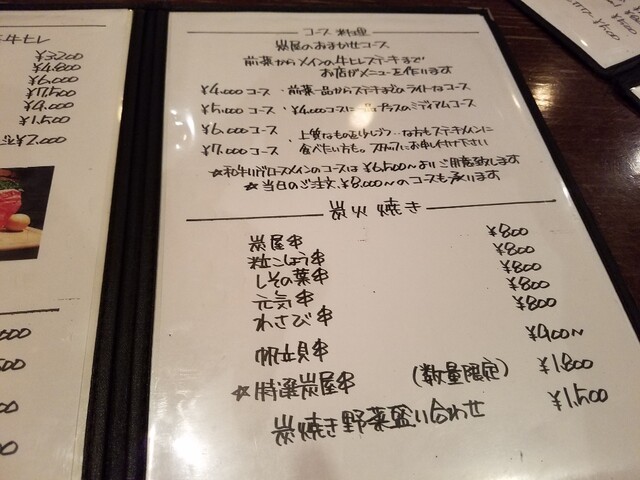 牛ヒレ
¥3200
¥4,800
¥6,000
¥7,500
¥9,000
¥1,500
¥2,000
コース 料理
炭屋のおまかせコース
前菜からメインの牛ヒレステーキまで
お店がメニューを作ります
¥4,000コース・前菜一品からステーキまでのライトなコース
¥5,000コース・¥4,000コースに プラスのミディアムコース
¥6,000コース・上質なものを少しづつ…な方もステキメインに
¥7,000コース 食べたい方も。スタッフにお申し付け下さい
☆和牛リブロースメインのコースは¥6,500〜よりご用意致します
☆当日のご注文、¥8,000〜のコースも承ります
炭火焼き
炭屋串 ¥800
粒こしょう串 ¥800
しその葉串 ¥800
元気串 ¥800
わさび串 ¥800
帆立貝串 ¥900〜
☆特選炭屋串 (数量限定) ¥1,800
炭焼き野菜盛り合わせ ¥1,500